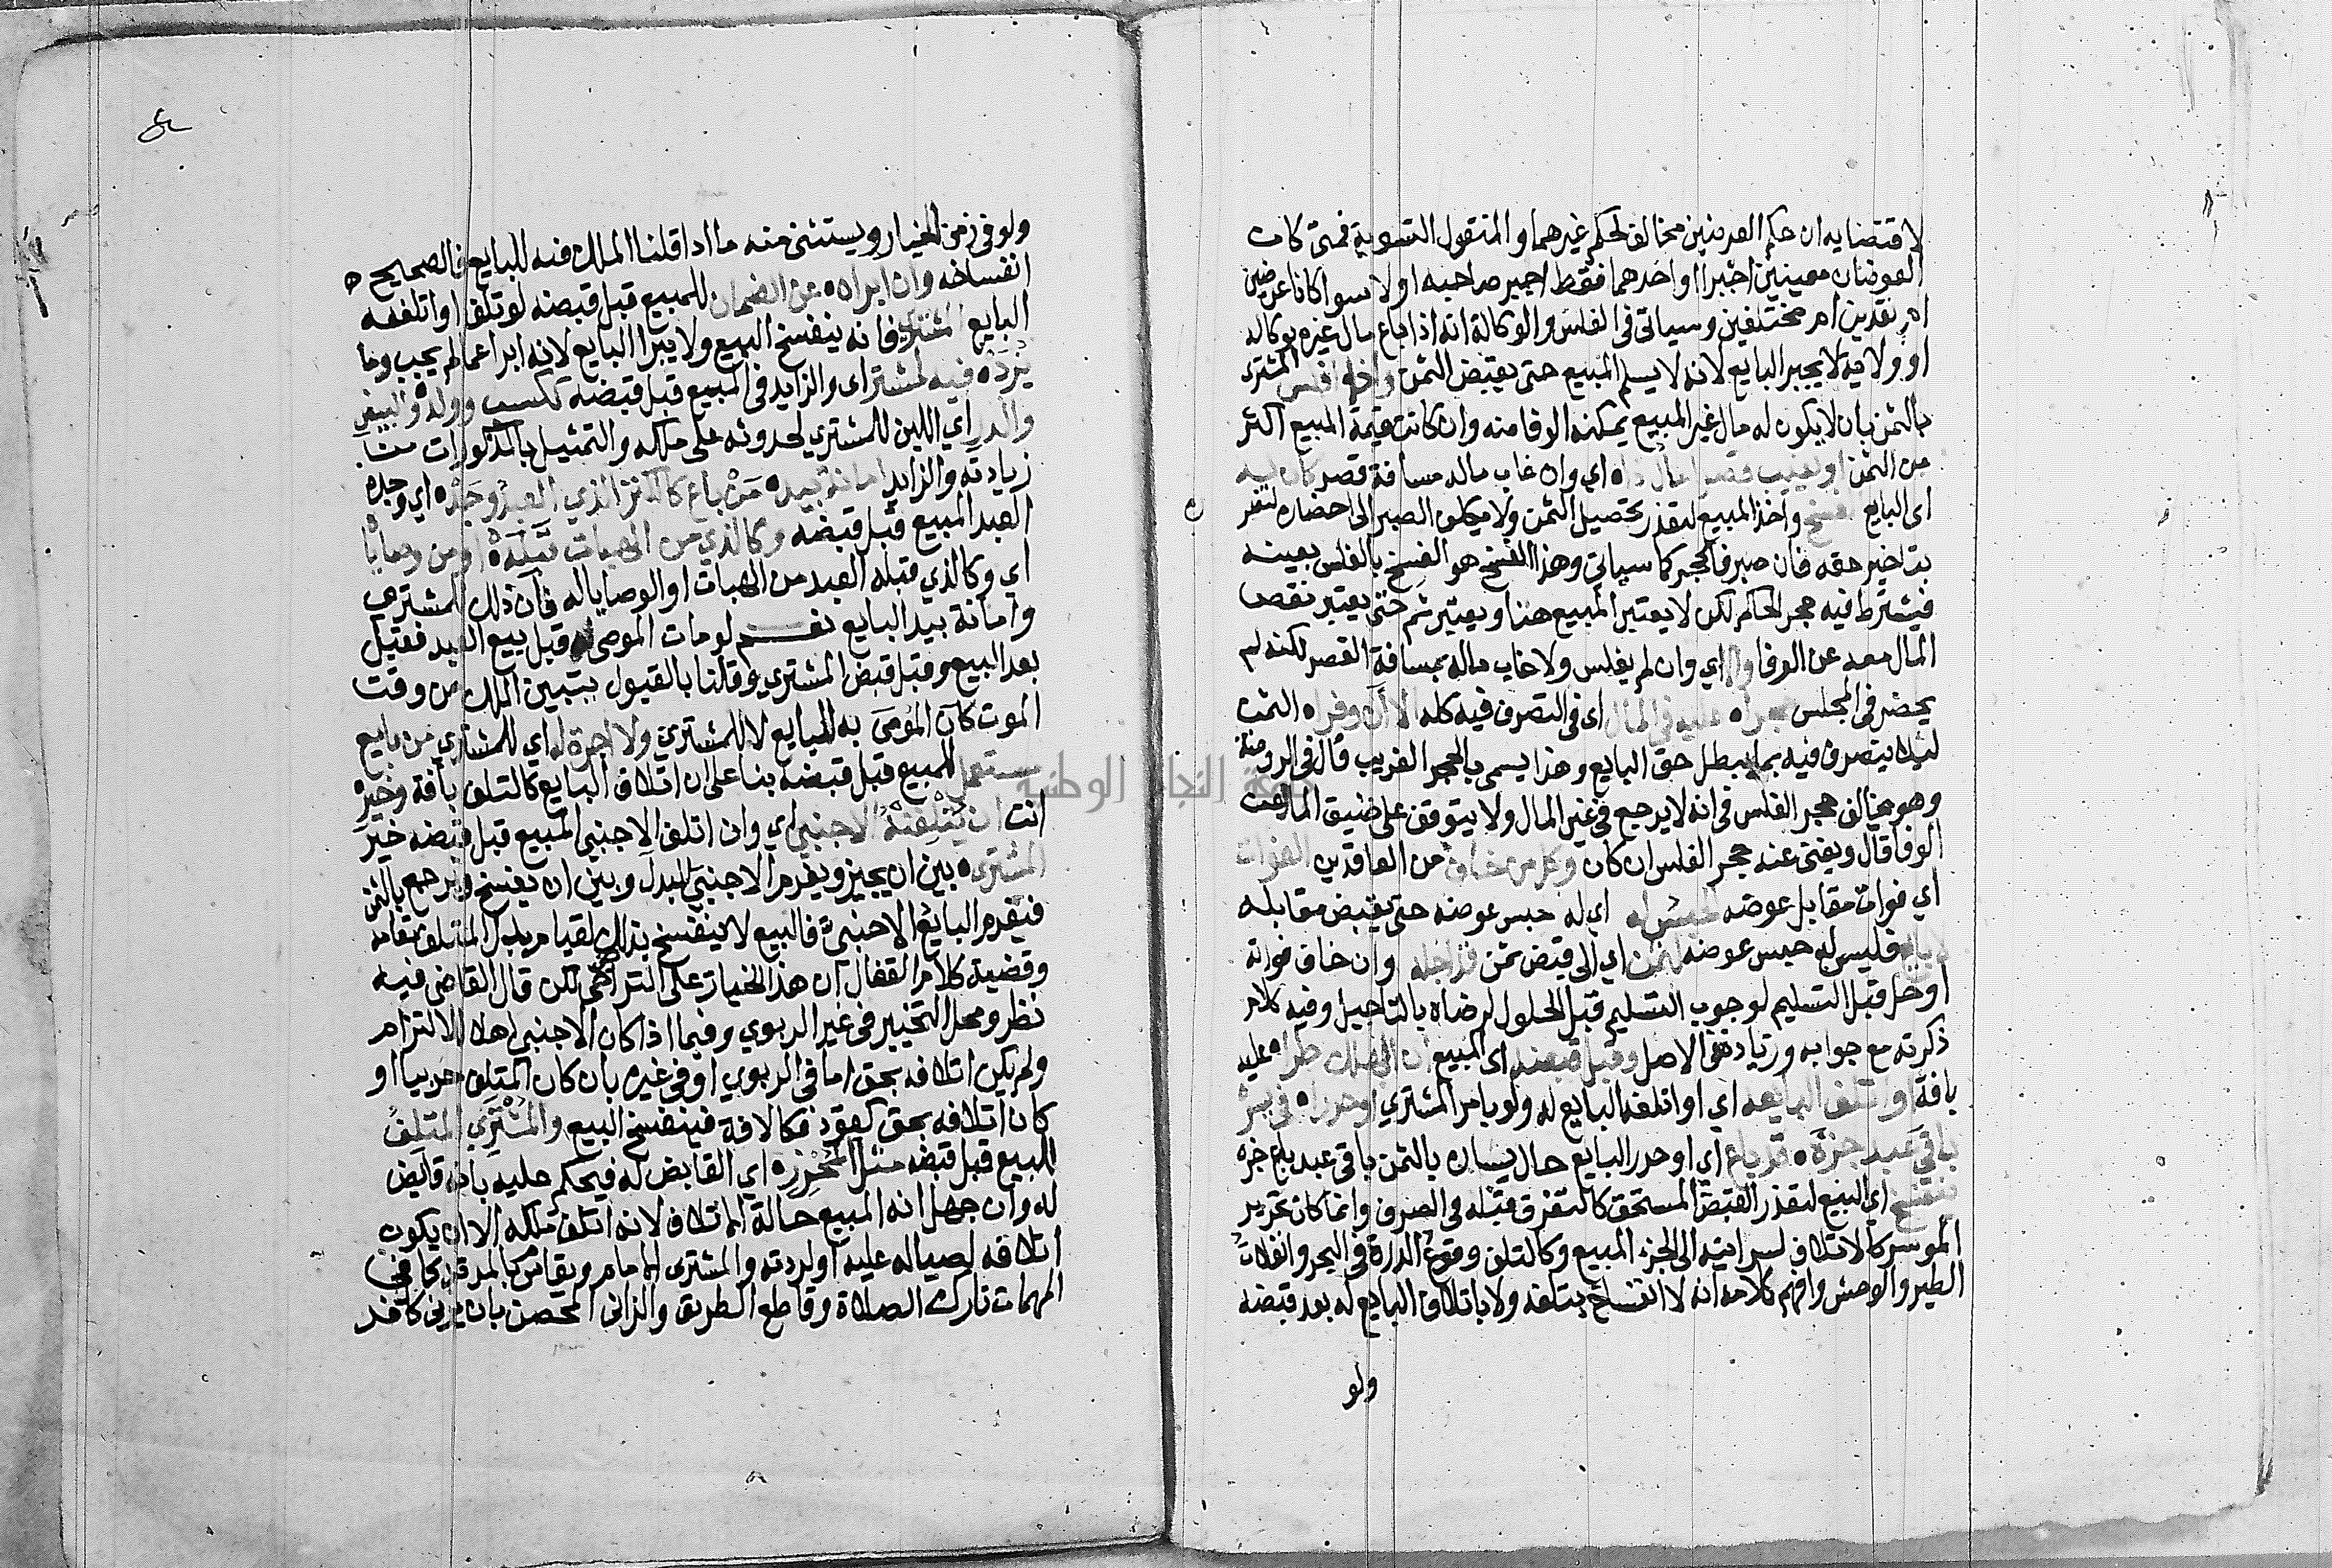 لاقتضايه ان حكم العرضين مخالف لحكم غيرهما والمنقول التسوية فمتى كان
العوضان معينين اجبرا او احدهما فقط اجبر صاحبه اولا سوا كانا عرضين
ام نقدين ام مختلفين وسياتي في الفلس والوكالة انه اذا باع مال غيره بوكالة
او ولاية لا يجبر البايع لانه لا يسلم المبيع حتى يقبض الثمن وان افلس المشترى
بالثمن بان لا يكون له مال غير المبيع يمكنه الوفا منه وان كانت قيمة المبيع اكثر
من الثمن او يغيب قصر مال ذاه اي وان غاب ماله مسافة قصر كان له
اى البايع الفسخ واخذ المبيع لتعذر تحصيل الثمن ولا يكلف الصبر الى احضاره لتضرر
بتاخير حقه فان صبر فالحجر كما سياتي وهذا الفسخ هو الفسخ بالفلس بعينه
فيشترط فيه حجر الحاكم لكن لا يعتبر المبيع هنا ويعتبر ثم حتى يعتبر نقص
المال معه عن الوفا والا اي وان لم يفلس ولا غاب ماله بمسافة القصر لكنه لم
يحضر في المجلس حجراه عليه في المال اى في التصرف فيه كله الا ان وفراه الثمن
ليلا يتصرف فيه بما يبطل حق البايع وهذا يسمى بالحجر الغريب قال في الروضة
وهو يخالف حجر الفلس في انه لا يرجع في عين المال ولا يتوقف على ضيق المال عن
الوفا قال ويغني عنه حجر الفلس ان كان وكل من خاف من العاقدين الفوات
اي فوات مقابل عوضه الحبس له اي له حبس عوضه حتى يقبض مقابله
لا بايع فليس له حبس عوضه لثمن اي الى قبض ثمن قد اجله وان خاف فواته
او حل قبل التسليم لوجوب التسليم قبل الحلول لرضاه بالتاجيل وفيه كلام
ذكرته مع جوابه وزيادة في الاصل وقبل قبضه اى المبيع ان الهلاك طرا عليه
بافة او اتلف البايعه اي او اتلفه البايع له ولو بامر المشتري او حرراه في يسر
باقي عبد جزه قد باع اي او حرر البايع حال يساره بالثمن باقي عبد باع جزه
ينفسخ اي البيع لتعذر القبض المستحق كالتفرق قبله في الصرف وانما كان تحرير
الموسر كالاتلاف لسرايته الى الجزء المبيع وكالتلف وقوع الدرة في البحر وانفلات
الطير والوحش وافهم كلامه انه لا انفساخ بتلفه ولا باتلاف البايع له بعد قبضه
ولو
ولو في زمن الخيار ويستثنى منه ما اذا قلنا الملك فيه للبايع فالصحيح
انفساخه وان ابراه عن الضمان للمبيع قبل قبضه لو تلف او اتلفه
البايع المشتري فانه ينفسخ البيع ولا يبرا البايع لانه ابرا عما لم يجب وما
يزده فيه لمشتر اى والزايد في المبيع قبل قبضه ككسب وولد والبيض
والدر اي اللبن للمشتري لحدوثه على ملكه والتمثيل بالمذكورات من
زيادته والزايد امانة بيده من باع كالكنز الذي العبد وجده اي وجده
العبد المبيع قبل قبضه وكالذي من الهبات قبله او من وصايا
اي وكالذي قبله العبد من الهبات او الوصايا له فان ذلك للمشتري
وامانة بيد البايع نعم لو مات الموصي له قبل بيع العبد فقبل
بعد البيع وقبل قبض المشتري وقلنا بالقبول يتبين الملك من وقت
الموت كان الموصى به للبايع لا للمشتري ولا اجرة له اي للمشتري من بايع
مستعمل للمبيع قبل قبضه بنا على ان اتلاف البايع كالتلف بافة وخير
انت ان يتلفه الاجنبي اي وان اتلف الاجنبي المبيع قبل قبضه خير
المشتري بين ان يجيز ويغرم الاجنبي البدل وبين ان يفسخ ويرجع بالثمن
فيغرم البايع الاجنبي فالبيع لا ينفسخ بذلك لقيام بدل المتلف مقامه
وقضية كلام القفال ان هذا الخيار على التراخي لكن قال القاضى فيه
نظر ومحل التخيير في غير الربوي وفيما اذا كان الاجنبي اهلا للالتزام
ولم يكن اتلافه بحق اما في الربوي او في غيره بان كان المتلف حربيا او
كان اتلافه بحق كقود فكالافة فينفسخ البيع والمشتري المتلف
للمبيع قبل قبضه مثل المحرزه اي القابض له فيحكم عليه بانه قابض
له وان جهل انه المبيع حالة الاتلاف لانه اتلف ملكه الا ان يكون
اتلافه لصياله عليه او لردته والمشترى الامام ويقاس بالمرتد كما في
المهمات تارك الصلاة وقاطع الطريق والزاني المحصن بان يزني كافر